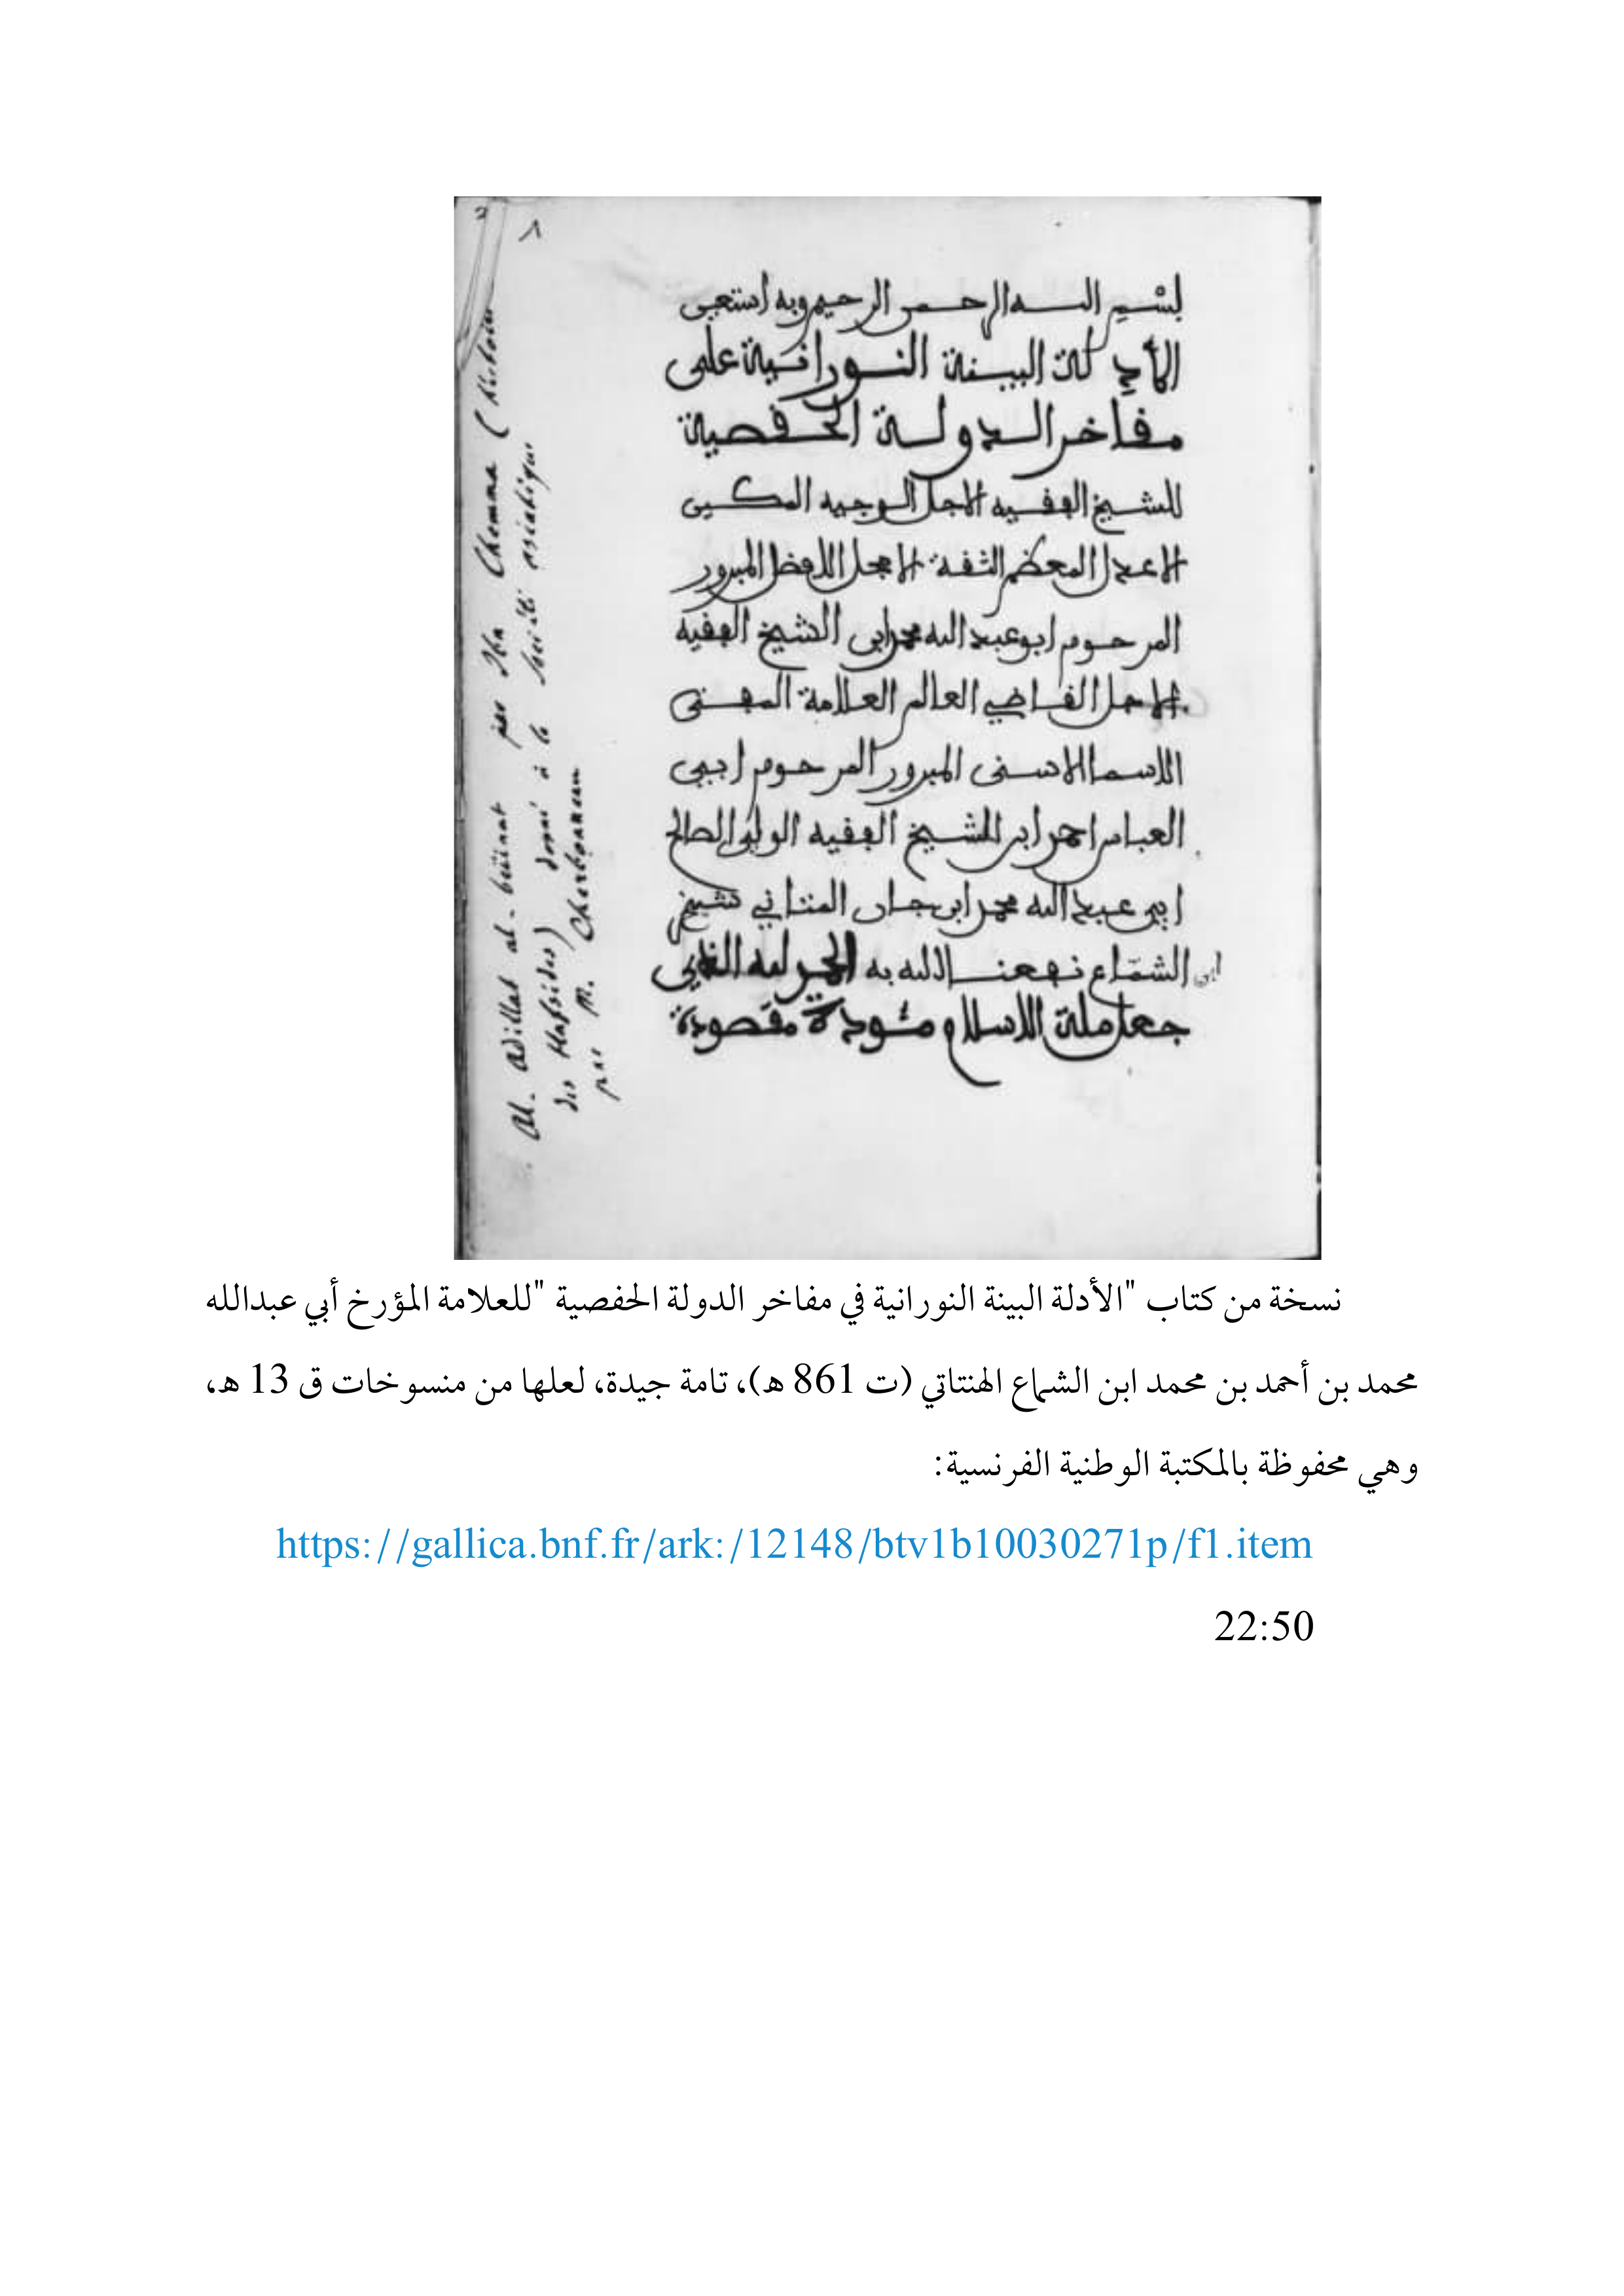 بسم الله الرحمن الرحيم وبه استعين
الأدلة البينة النورانية على
مفاخر الدولة الحفصية
للشيخ الفقيه الاجل الوجيه المكين
الاعدل المعظم الثقة الامجل الافضل المبرور
المرحوم ابو عبد الله محمد ابن الشيخ الفقيه
الاجل القاضي العالم العلامة المفتى
الاسما الاسنى المبرور المرحوم ابي
العباس احمد ابن الشيخ الفقيه الولي الصالح
ابي عبد الله محمد ابن الهنتاتي شيخ
ابن الشماع نفعنا الله به الحمد لله الذي
جعل ملة الاسلام مقصودة
Al-Adillat al-beïinat par Ibn Chemma (histoire
des Hafsides) donné à la Société asiatique
par M. Cherbonneau
نسخة من كتاب "الأدلة البينة النورانية في مفاخر الدولة الحفصية "للعلامة المؤرخ أبي عبدالله
محمد بن أحمد بن محمد ابن الشماع الهنتاتي (ت 861 هـ)، تامة جيدة، لعلها من منسوخات ق 13 هـ،
وهي محفوظة بالمكتبة الوطنية الفرنسية:
https://gallica.bnf.fr/ark:/12148/btv1b10030271p/f1.item
22:50